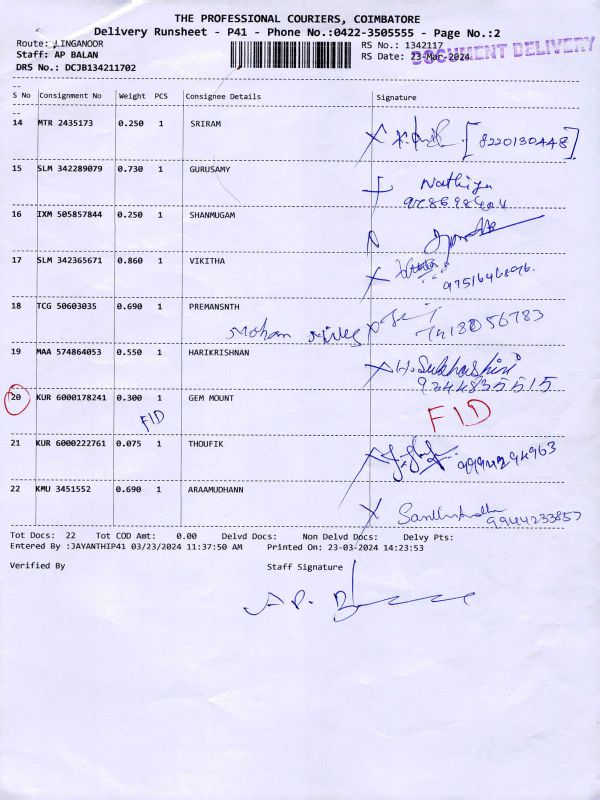 THE PROFESSIONAL COURIERS, COIMBATORE
Delivery Runsheet - P41 - Phone No.:0422-3505555 - Page No.:2
Route: LINGANOOR
RS No.: 1342117
DOCUMENT DELIVERY
Staff: AP BALAN
RS Date: 23-Mar-2024
DRS No.: DCJB134211702
S No Consignment No Weight PCS Consignee Details Signature
14 MTR 2435173 0.250 1 SRIRAM
[8220130448]
15 SLM 342289079 0.730 1 GURUSAMY
16 IXM 505857844 0.250 1 SHANMUGAM
17 SLM 342365671 0.860 1 VIKITHA
18 TCG 50603035 0.690 1 PREMANSNTH
Mohan
19 MAA 574864053 0.550 1 HARIKRISHNAN
H. Sukhashini
9344835515
20 KUR 6000178241 0.300 1 GEM MOUNT
FID FID
21 KUR 6000222761 0.075 1 THOUFIK
22 KMU 3451552 0.690 1 ARAAMUDHANN
9944233857
Tot Docs: 22 Tot COD Amt: 0.00 Delvd Docs: Non Delvd Docs: Delvy Pts:
Entered By :JAYANTHIP41 03/23/2024 11:37:50 AM Printed On: 23-03-2024 14:23:53
Verified By Staff Signature
A P. B